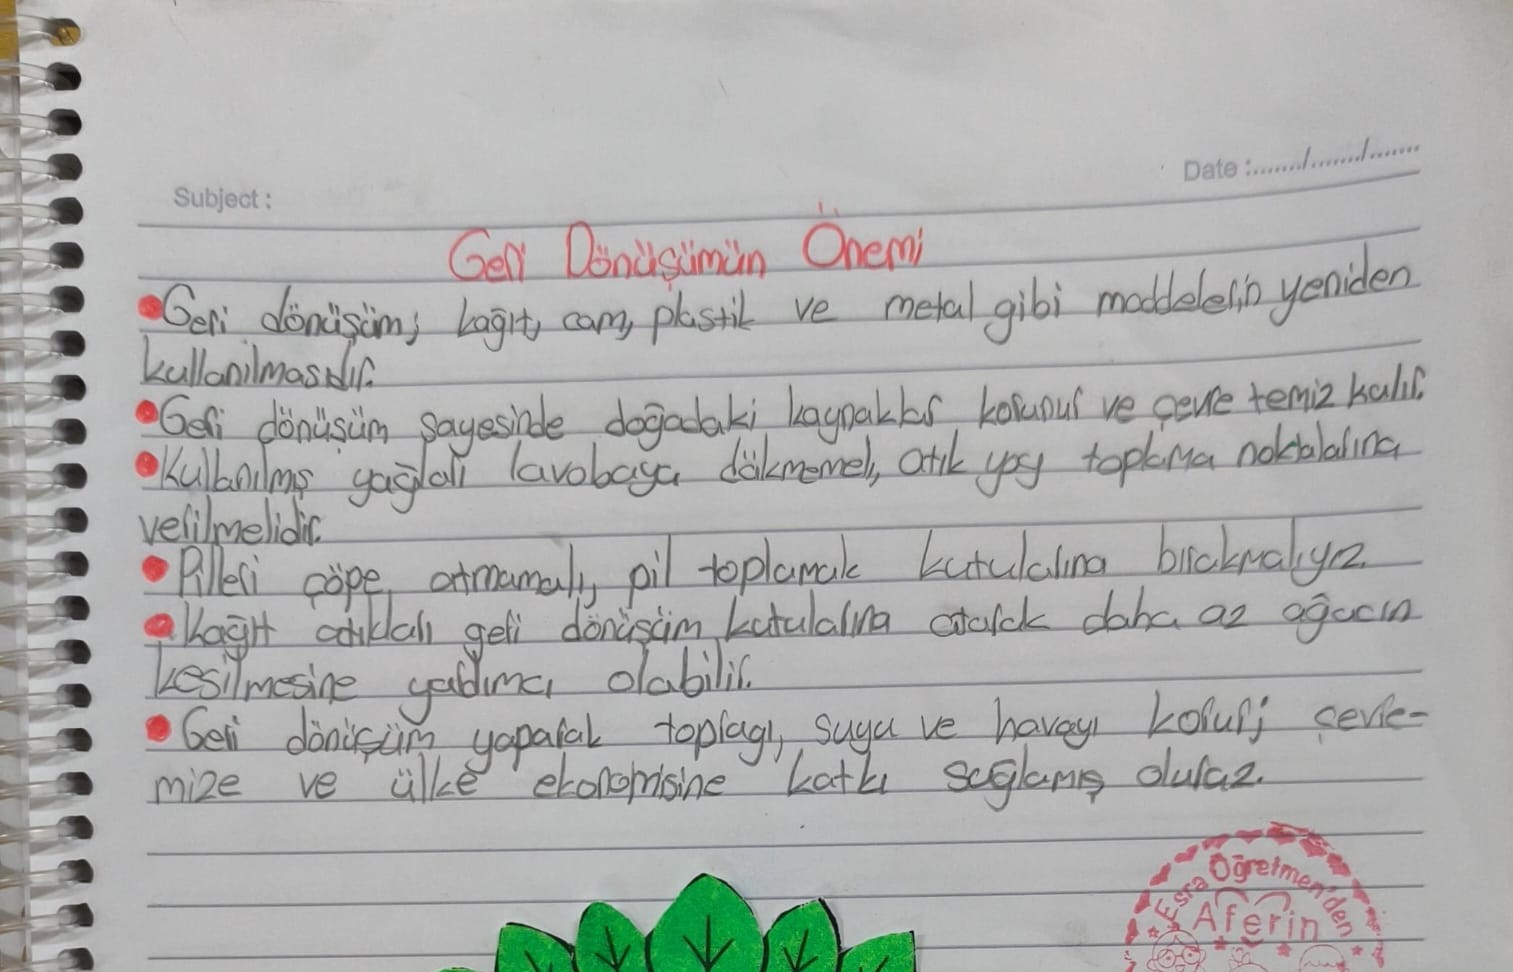 Subject :
Date :......../......../........
Geri Dönüşümün Önemi
Geri dönüşüm; kağıt, cam, plastik ve metal gibi maddelerin yeniden
kullanılmasıdır.
Geri dönüşüm sayesinde doğadaki kaynaklar korunur ve çevre temiz kalır.
Kullanılmış yağları lavobaya dökmemeli, atık yağ toplama noktalarına
verilmelidir.
Pilleri çöpe atmamalı, pil toplamak kutularına bırakmalıyız.
Kağıt atıkları geri dönüşüm kutularına atarak daha az ağacın
kesilmesine yardımcı olabilir.
Geri dönüşüm yaparak toprağı, suyu ve havayı korur; çevre-
mize ve ülke ekonomisine katkı sağlamış oluruz.
Esra Öğretmen'den
Aferin